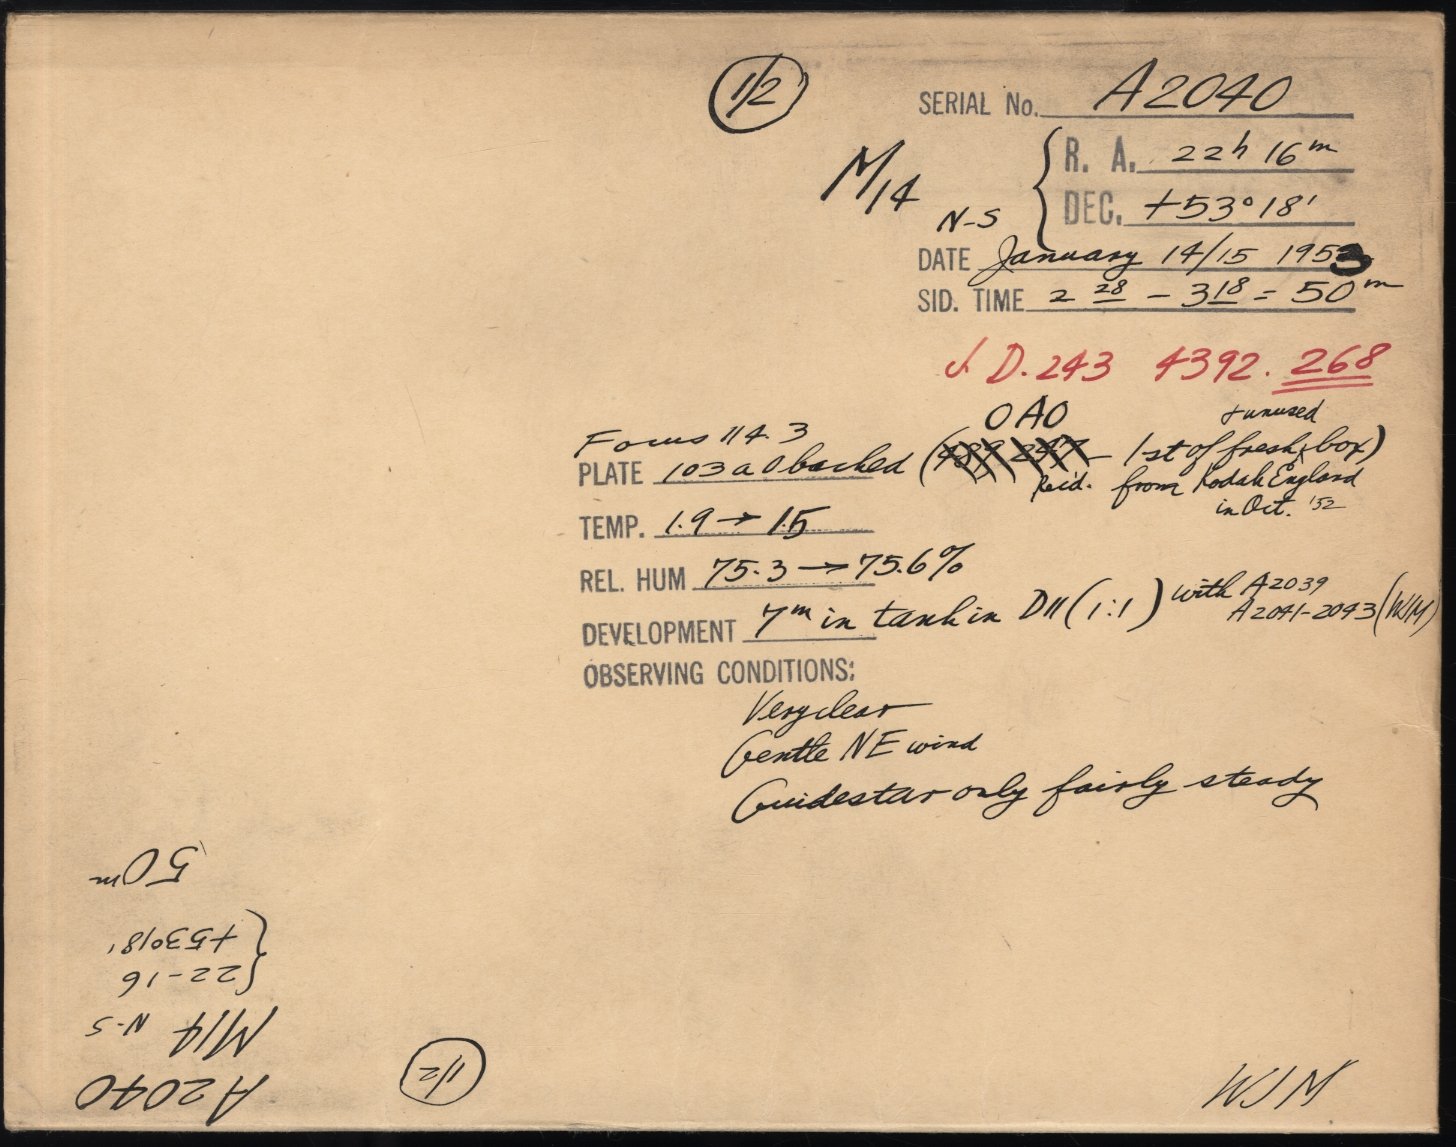 1/2
SERIAL No. A2040
M/14 N-S
R. A. 22h 16m
DEC. +53°18'
DATE January 14/15 1953
SID. TIME 2 28 - 3 18 = 50m
J.D. 243 4392.268
OAO
+ unused
Focus 114.3
PLATE 103a O backed ( - 1st of fresh box)
Rec'd. from Kodak England
in Oct. '52
TEMP. 1.9 → 1.5
REL. HUM 75.3 → 75.6%
DEVELOPMENT 7m in tank in D11 (1:1) with A2039
A2041-2043 (WJM)
OBSERVING CONDITIONS:
Very clear
Gentle NE wind
Guidestar only fairly steady
A2040
M14 N-S
22-16
+53°18'
50m
1/2
WJM